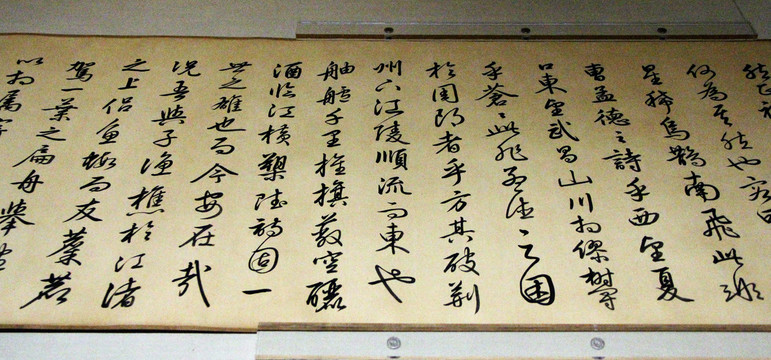 然正
何為其然也客曰
星稀烏鵲南飛此非
曹孟德之詩乎西望夏
口東望武昌山川相繆鬱
乎蒼〻此非孟德之困
於周郎者乎方其破荊
州下江陵順流而東也
舳艫千里旌旗蔽空釃
酒臨江橫槊賦詩固一
世之雄也而今安在哉
況吾與子漁樵於江渚
之上侶魚蝦而友麋鹿
駕一葉之扁舟舉匏
以相屬寄